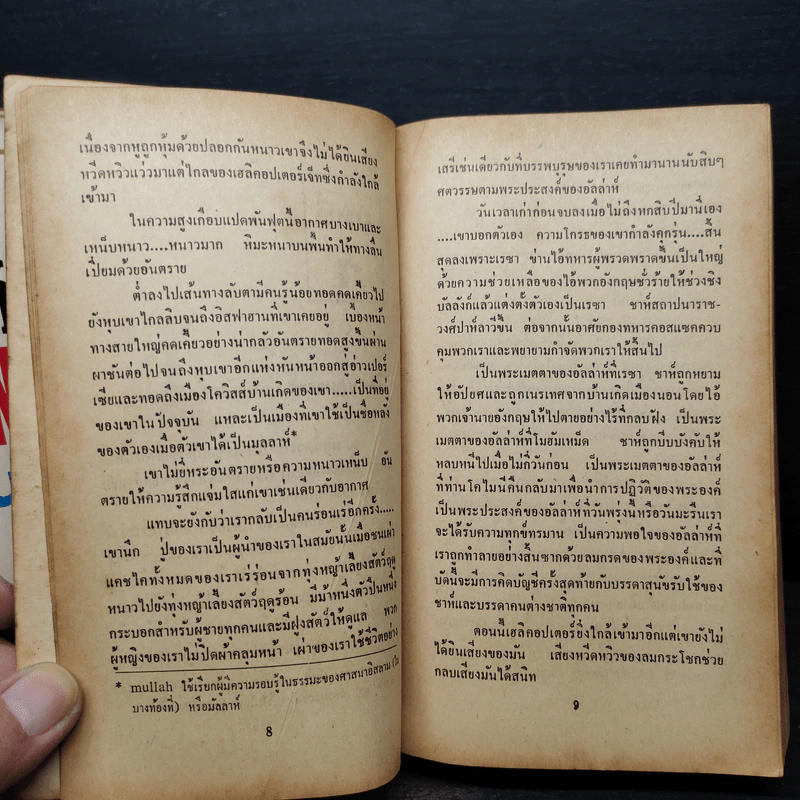 เนื่องจากหูถูกหุ้มด้วยปลอกกันหนาวเขาจึงไม่ได้ยินเสียง
หวีดหวิวแว่วมาแต่ไกลของเฮลิคอปเตอร์เจ็ทซึ่งกำลังใกล้
เข้ามา
ในความสูงเกือบแปดพันฟุตนี้อากาศบางเบาและ
เหน็บหนาว....หนาวมาก หิมะหนาบนพื้นทำให้ทางลื่น
เปี่ยมด้วยอันตราย
ต่ำลงไปเส้นทางลับตามีคนรู้น้อยทอดคดเคี้ยวไป
ยังหุบเขาไกลลิบจนถึงอิสฟาฮานที่เขาเคยอยู่ เบื้องหน้า
ทางสายใหญ่คดเคี้ยวอย่างน่ากลัวอันตรายทอดสูงขึ้นผ่าน
ผาชันต่อไปจนถึงหุบเขาอีกแห่งหันหน้าออกสู่อ่าวเปอร์
เซียและทอดถึงเมืองโควิสส์บ้านเกิดของเขา.....เป็นที่อยู่
ของเขาในปัจจุบัน แหละเป็นเมืองที่เขาใช้เป็นชื่อหลัง
ของตัวเองเมื่อตัวเขาได้เป็นมุลลาห์*
เขาไม่ยี่หระอันตรายหรือความหนาวเหน็บ อัน
ตรายให้ความรู้สึกแจ่มใสแก่เขาเช่นเดียวกับอากาศ
แทบจะยังกับว่าเรากลับเป็นคนร่อนเร่อีกครั้ง.....
เขานึก ปู่ของเราเป็นผู้นำของเราในสมัยนั้นเมื่อชนเผ่า
แคชไคทั้งหมดของเราเร่ร่อนจากทุ่งหญ้าเลี้ยงสัตว์ฤดู
หนาวไปยังทุ่งหญ้าเลี้ยงสัตว์ฤดูร้อน มีม้าหนึ่งตัวปืนหนึ่ง
กระบอกสำหรับผู้ชายทุกคนและมีฝูงสัตว์ให้ดูแล พวก
ผู้หญิงของเราไม่ปิดผ้าคลุมหน้า เผ่าของเราใช้ชีวิตอย่าง
* mullah ใช้เรียกผู้มีความรอบรู้ในธรรมะของศาสนาอิสลาม (ใน
บางท้องที่) หรือมัลลาห์
8
เสรีเช่นเดียวกับที่บรรพบุรุษของเราเคยทำมานานนับสิบๆ
ศตวรรษตามพระประสงค์ของอัลล่าห์
วันเวลาเก่าก่อนจบลงเมื่อไม่ถึงหกสิบปีมานี้เอง
....เขาบอกตัวเอง ความโกรธของเขากำลังคุกรุ่น....สิ้น
สุดลงเพราะเรซา ข่านไอ้ทหารผู้พรวดพราดขึ้นเป็นใหญ่
ด้วยความช่วยเหลือของไอ้พวกอังกฤษชั่วร้ายให้ช่วงชิง
บัลลังก์แล้วแต่งตั้งตัวเองเป็นเรซา ชาห์สถาปนาราช-
วงศ์ปาห์ลาวีขึ้น ต่อจากนั้นอาศัยกองทหารคอสแซคควบ
คุมพวกเราและพยายามกำจัดพวกเราให้สิ้นไป
เป็นพระเมตตาของอัลล่าห์ที่เรซา ชาห์ถูกหยาม
ให้อัปยศและถูกเนรเทศจากบ้านเกิดเมืองนอนโดยไอ้
พวกเจ้านายอังกฤษให้ไปตายอย่างไร้ที่กลบฝัง เป็นพระ
เมตตาของอัลล่าห์ที่โมฮัมเหม็ด ชาห์ถูกบีบบังคับให้
หลบหนีไปเมื่อไม่กี่วันก่อน เป็นพระเมตตาของอัลล่าห์
ที่ท่านโคไมนีคืนกลับมาเพื่อนำการปฏิวัติของพระองค์
เป็นพระประสงค์ของอัลล่าห์ที่วันพรุ่งนี้หรือวันมะรืนเรา
จะได้รับความทุกข์ทรมาน เป็นความพอใจของอัลล่าห์ที่
เราถูกทำลายอย่างสิ้นซากด้วยลมกรดของพระองค์และที่
บัดนี้จะมีการคิดบัญชีครั้งสุดท้ายกับบรรดาสุนัขรับใช้ของ
ชาห์และบรรดาคนต่างชาติทุกคน
ตอนนี้เฮลิคอปเตอร์ยิ่งใกล้เข้ามาอีกแต่เขายังไม่
ได้ยินเสียงของมัน เสียงหวีดหวิวของลมกระโชกช่วย
กลบเสียงมันได้สนิท
9